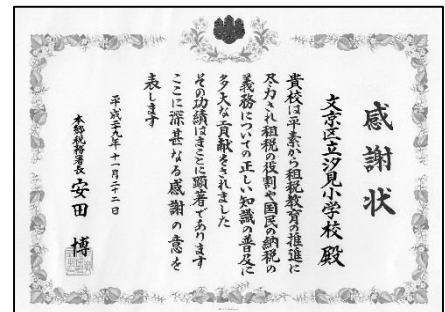 感謝状
文京区立汐見小学校 殿
貴校は平素から租税教育の推進に
尽力され租税の役割や国民の納税の
義務についての正しい知識の普及に
多大な貢献をされました
その功績はまことに顕著であります
ここに深甚なる感謝の意を
表します
平成二十九年十一月二十二日
本郷税務署長 安田 博